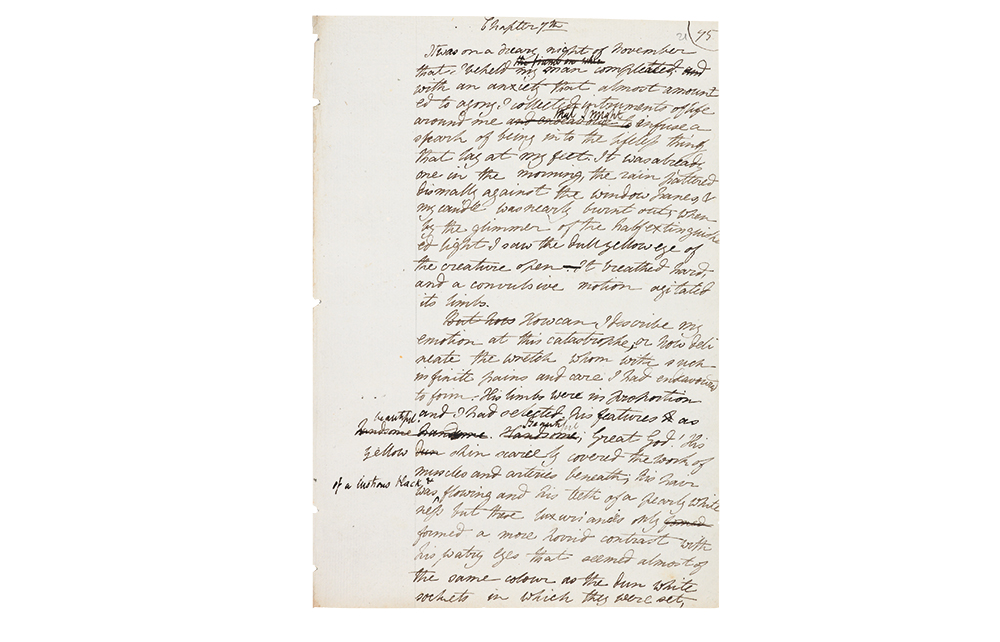 Chapter 7th
21 75
It was on a dreary night of November
the frame on whic
that I beheld my man compleated and
with an anxiety that almost amount
ed to agony I collected instruments of life
that I might
around me and endeavour to infuse a
spark of being into the lifeless thing
that lay at my feet. It was already
one in the morning, the rain pattered
dismally against the window panes, &
my candle was nearly burnt out, when
by the glimmer of the half extinguish
ed light I saw the dull yellow eye of
the creature open — It breathed hard,
and a convulsive motion agitated
its limbs.
But how How can I describe my
emotion at this catastrophe, or how deli
neate the wretch whom with such
infinite pains and care I had endeavoured
to form. His limbs were in proportion
and I had selected his features as
beautiful
handsome handsome. Handsome; Great God! His
Beautiful
yellow dun skin scarcely covered the work of
muscles and arteries beneath; his hair
of a lustrous black, &
was flowing and his teeth of a pearly white
ness but these luxuriances only formed
formed a more horrid contrast with
his watry eyes that seemed almost of
the same colour as the dun white
sockets in which they were set,